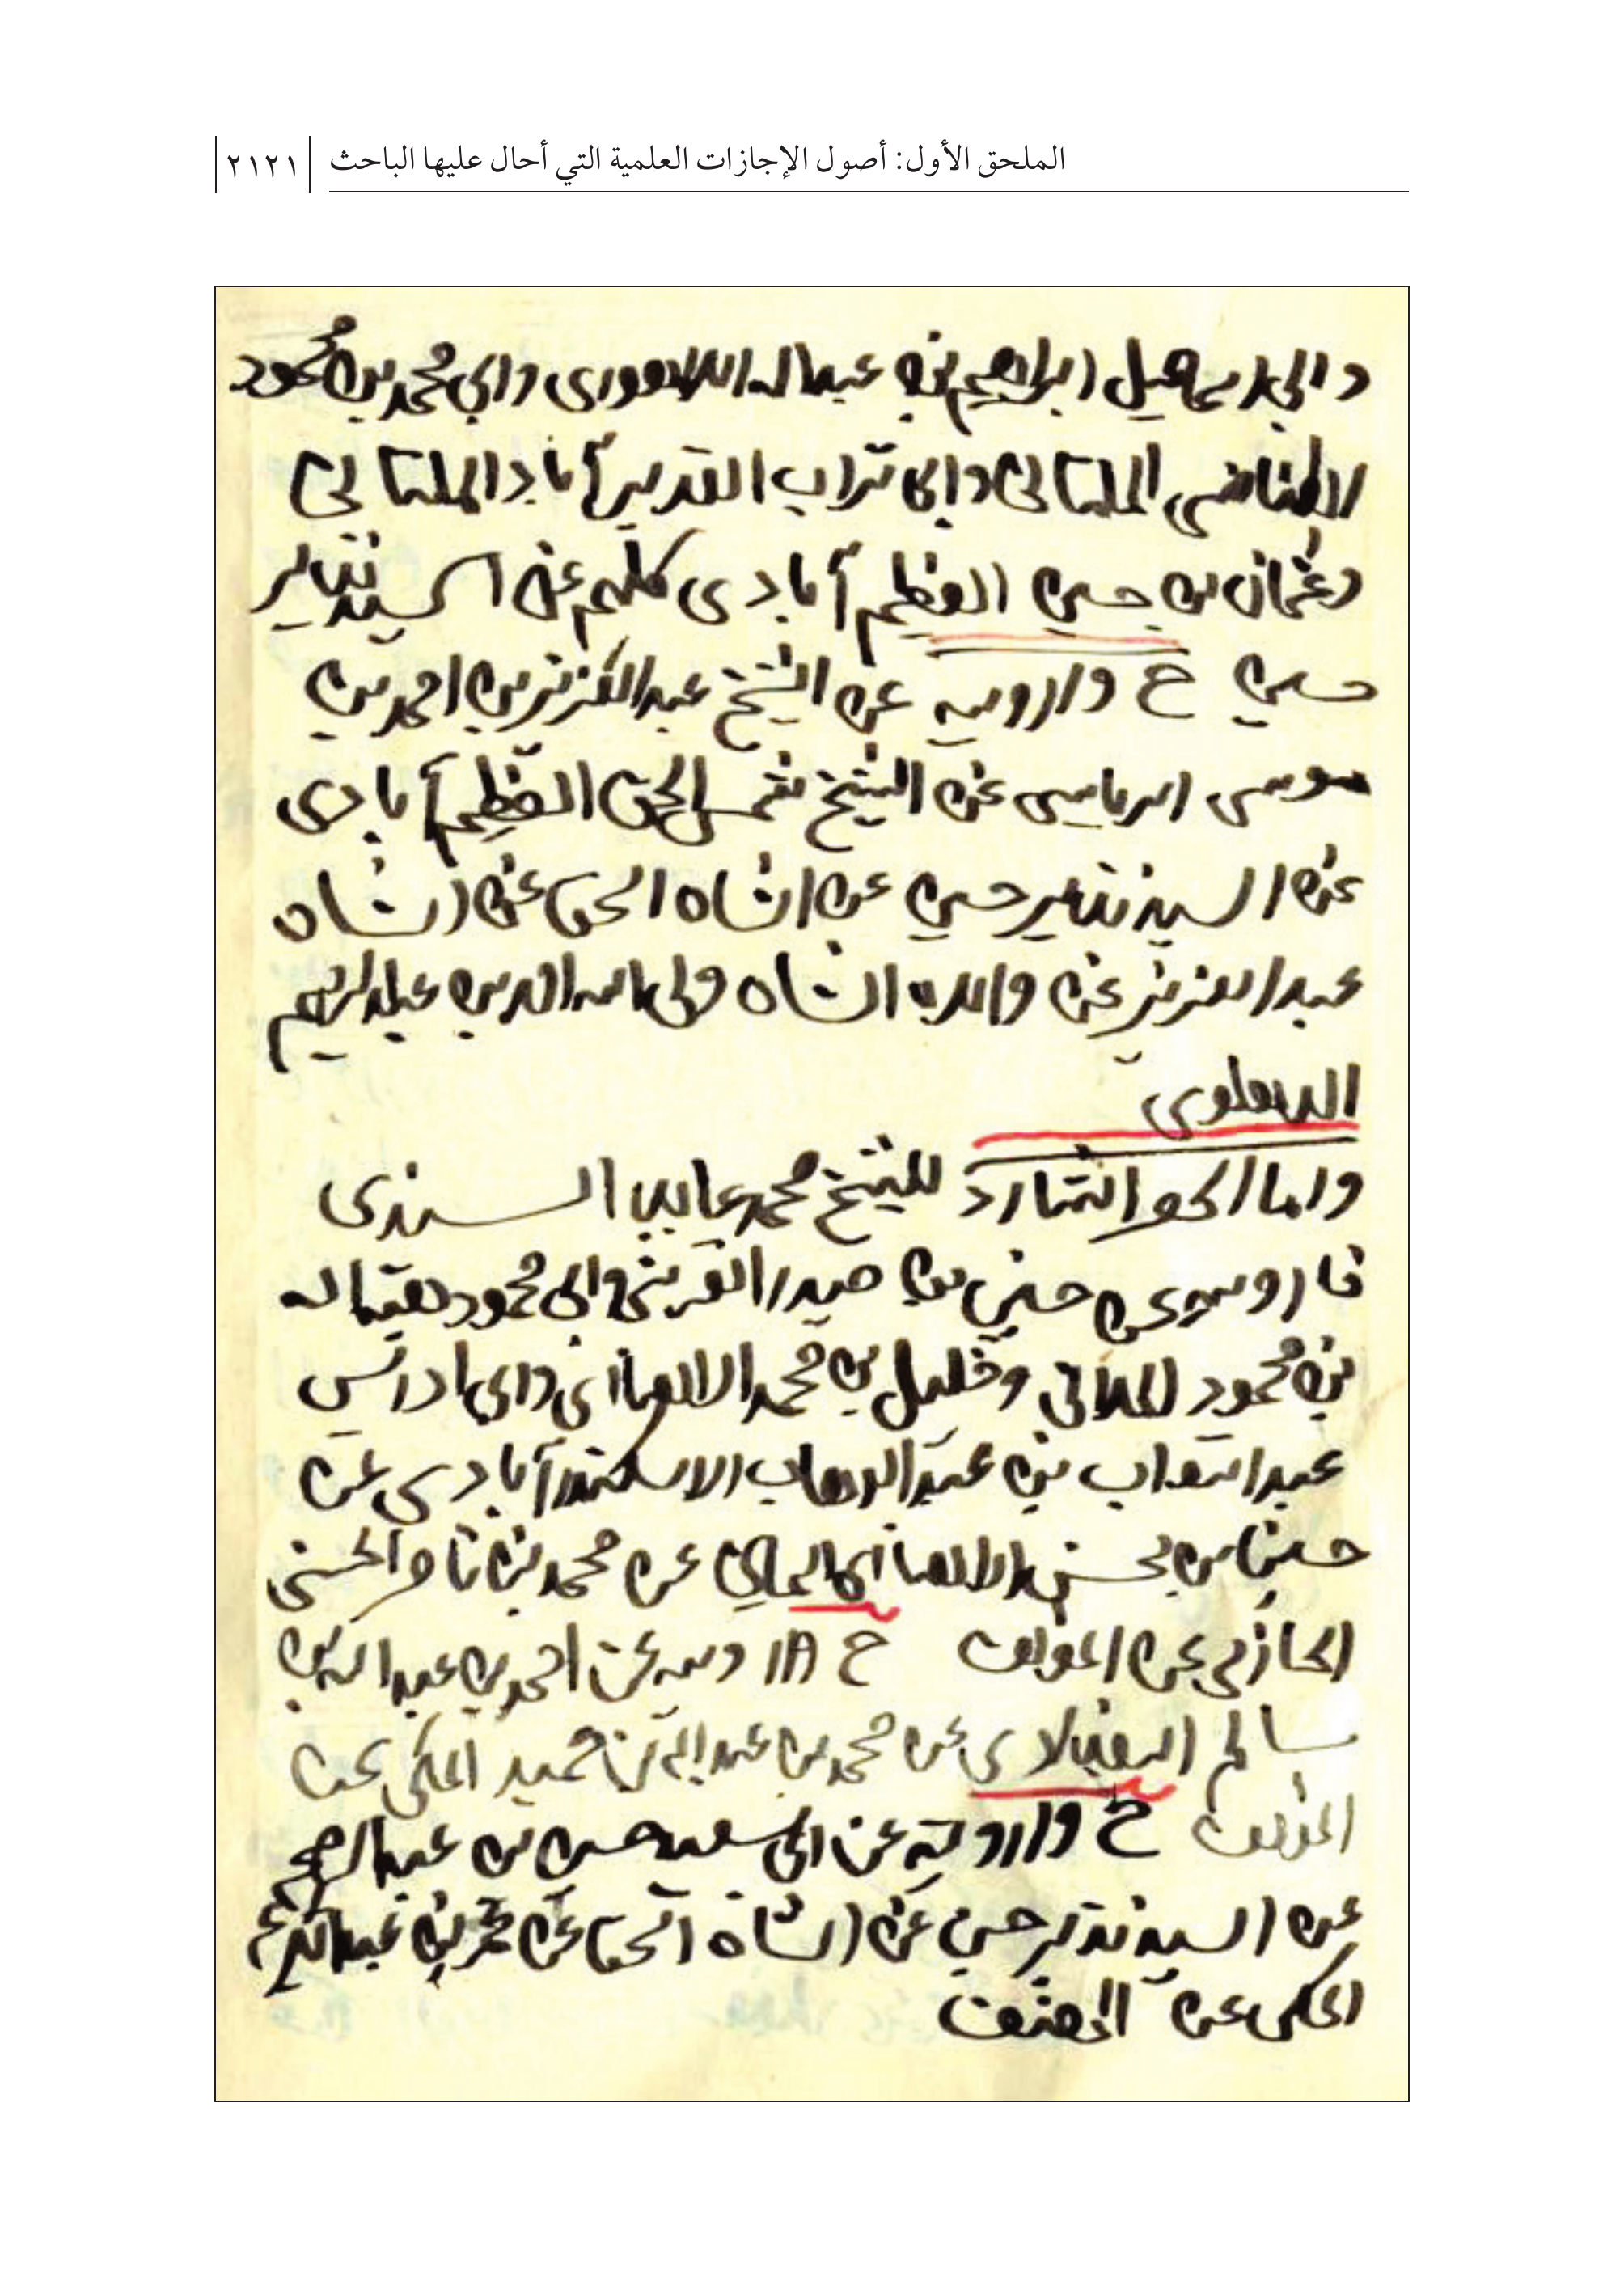 الملحق الأول: أصول الإجازات العلمية التي أحال عليها الباحث | ٢١٢١
وابي اسماعيل ابراهيم بن عبدالله اللاهوري وابي محمد بن محمود
الملتاني وابي تراب القدير آباد الملتاني
وعثمان بن حسين العظيم آبادي كلهم عن السيد نذير
حسين ح وارويه عن الشيخ عبدالعزيز بن احمد بن
موسى عن الشيخ شمس الحق العظيم آبادي
عن السيد نذير حسين عن الشاه اسحق عن الشاه
عبدالعزيز عن والده الشاه ولي الله الدين عبدالرحيم
الدهلوي
واما الحصر الشارد للشيخ محمد عابد السندي
فارويه عن حسين بن حيدر القرشي وابي محمود هبة الله
بن محمود الملاني وخليل بن محمد الانصاري وابي ادريس
عبدالتواب بن عبدالوهاب الاسكندرآبادي عن
حسين بن محسن الانصاري اليماني عن محمد بن ناصر الحسني
الحازمي عن المؤلف ح وارويه عن احمد بن عبدالله بن
سالم البغدادي عن محمد بن عبدالله بن حميد المكي عن
المؤلف ح وارويه عن ابي سعيد حسين بن عبدالرحيم
عن السيد نذير حسين عن الشاه اسحق عن عمر بن عبدالكريم
المكي عن المصنف